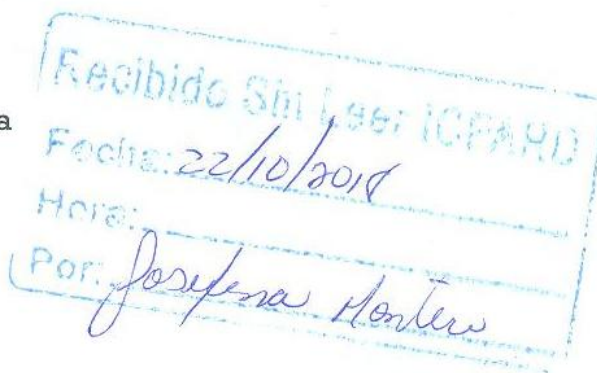 a
Recibido Sin Leer ICPARD
Fecha: 22/10/2018
Hora:
Por: Josefina Montero